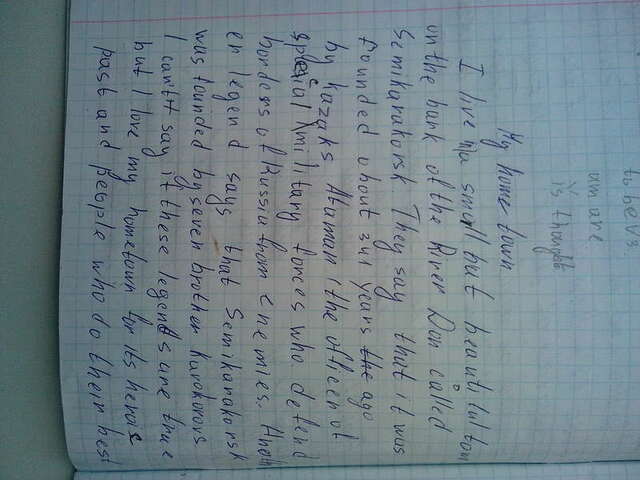 to be v s
am are
is thought
My home town
I live in a small but beautiful town
on the bank of the River Don called
Semikarakorsk They say that it was
founded about 341 years the ago
by kazaks Ataman (the officer of
special (military forces who defend
borders of Russia from enemies. Anoth
er legend says that Semikarakorsk
was founded by seven brother Karokorovs
I can't say if these legends are true
but I love my hometown for its herois
past and people who do their best